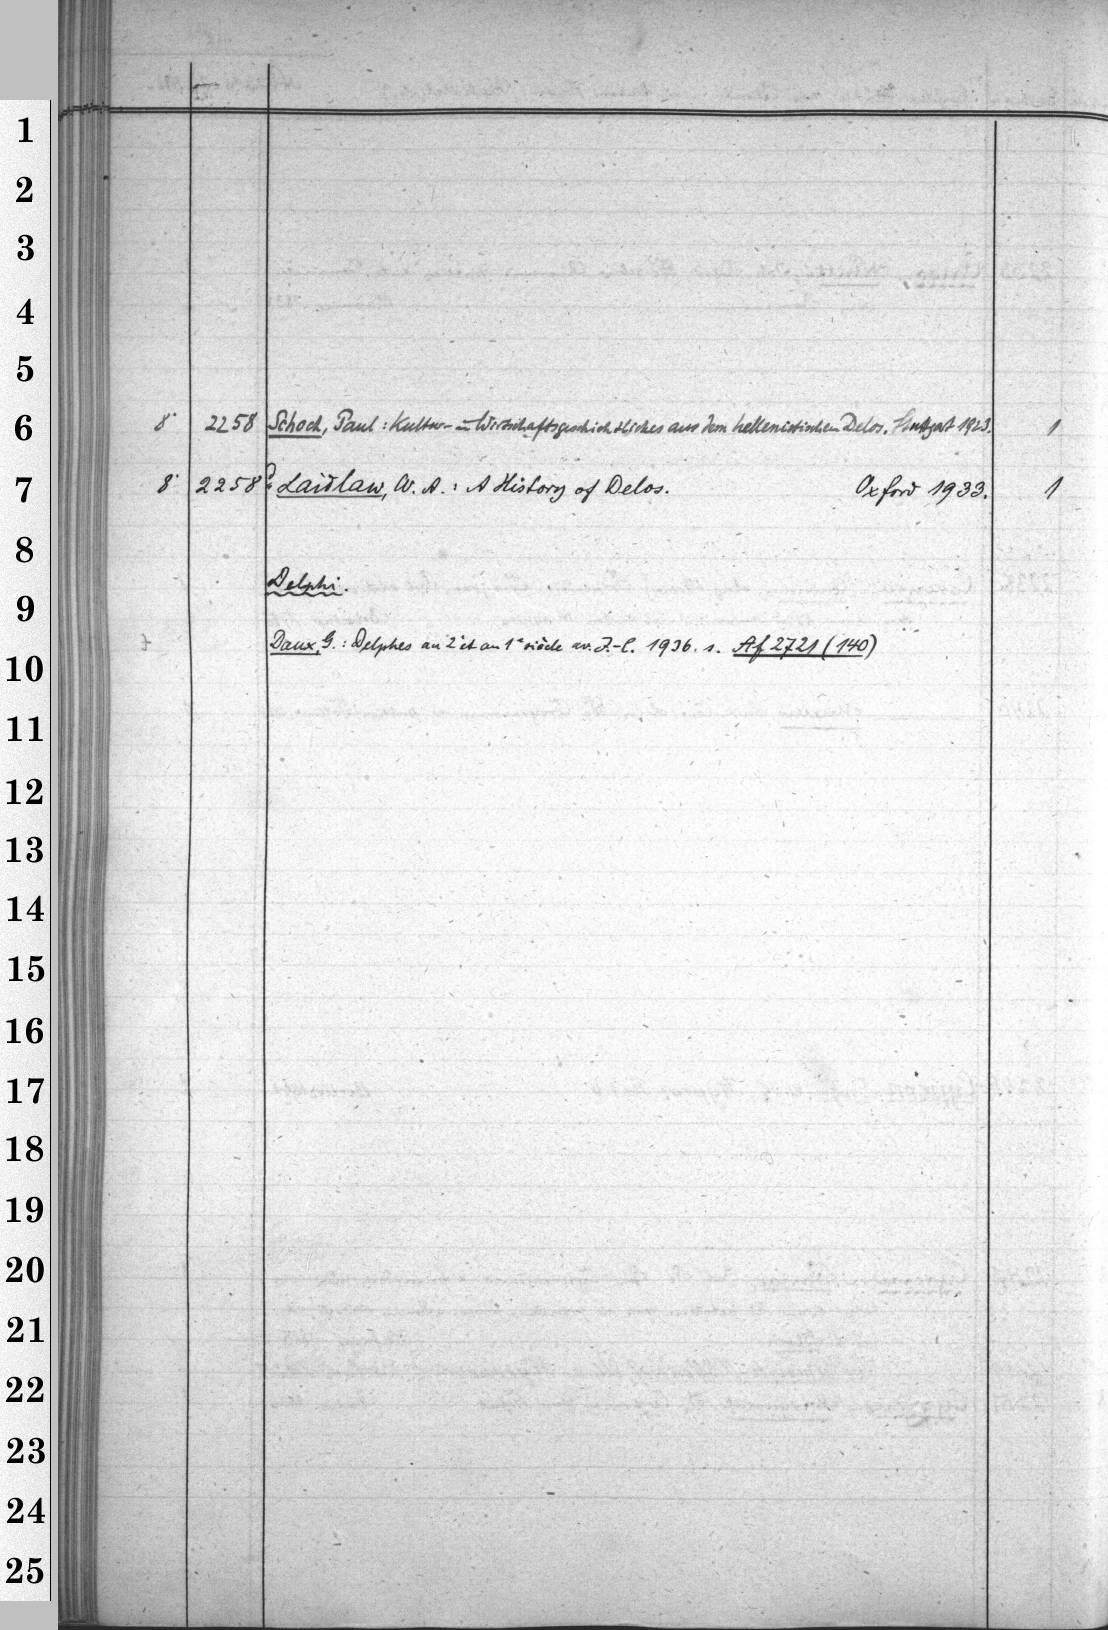 1
2
3
4
5
6
8° 2258 Schoch, Paul: Kultur- u. Wirtschaftsgeschichtliches aus dem hellenistischen Delos. Stuttgart 1923. 1
7
8° 2258 Laidlaw, W. A.: A History of Delos. Oxford 1933. 1
8
Delphi.
9
Daux, G.: Delphes au 2e et au 1er siècle av. J.-C. 1936. s. Af 2721 (140)
10
11
12
13
14
15
16
17
18
19
20
21
22
23
24
25